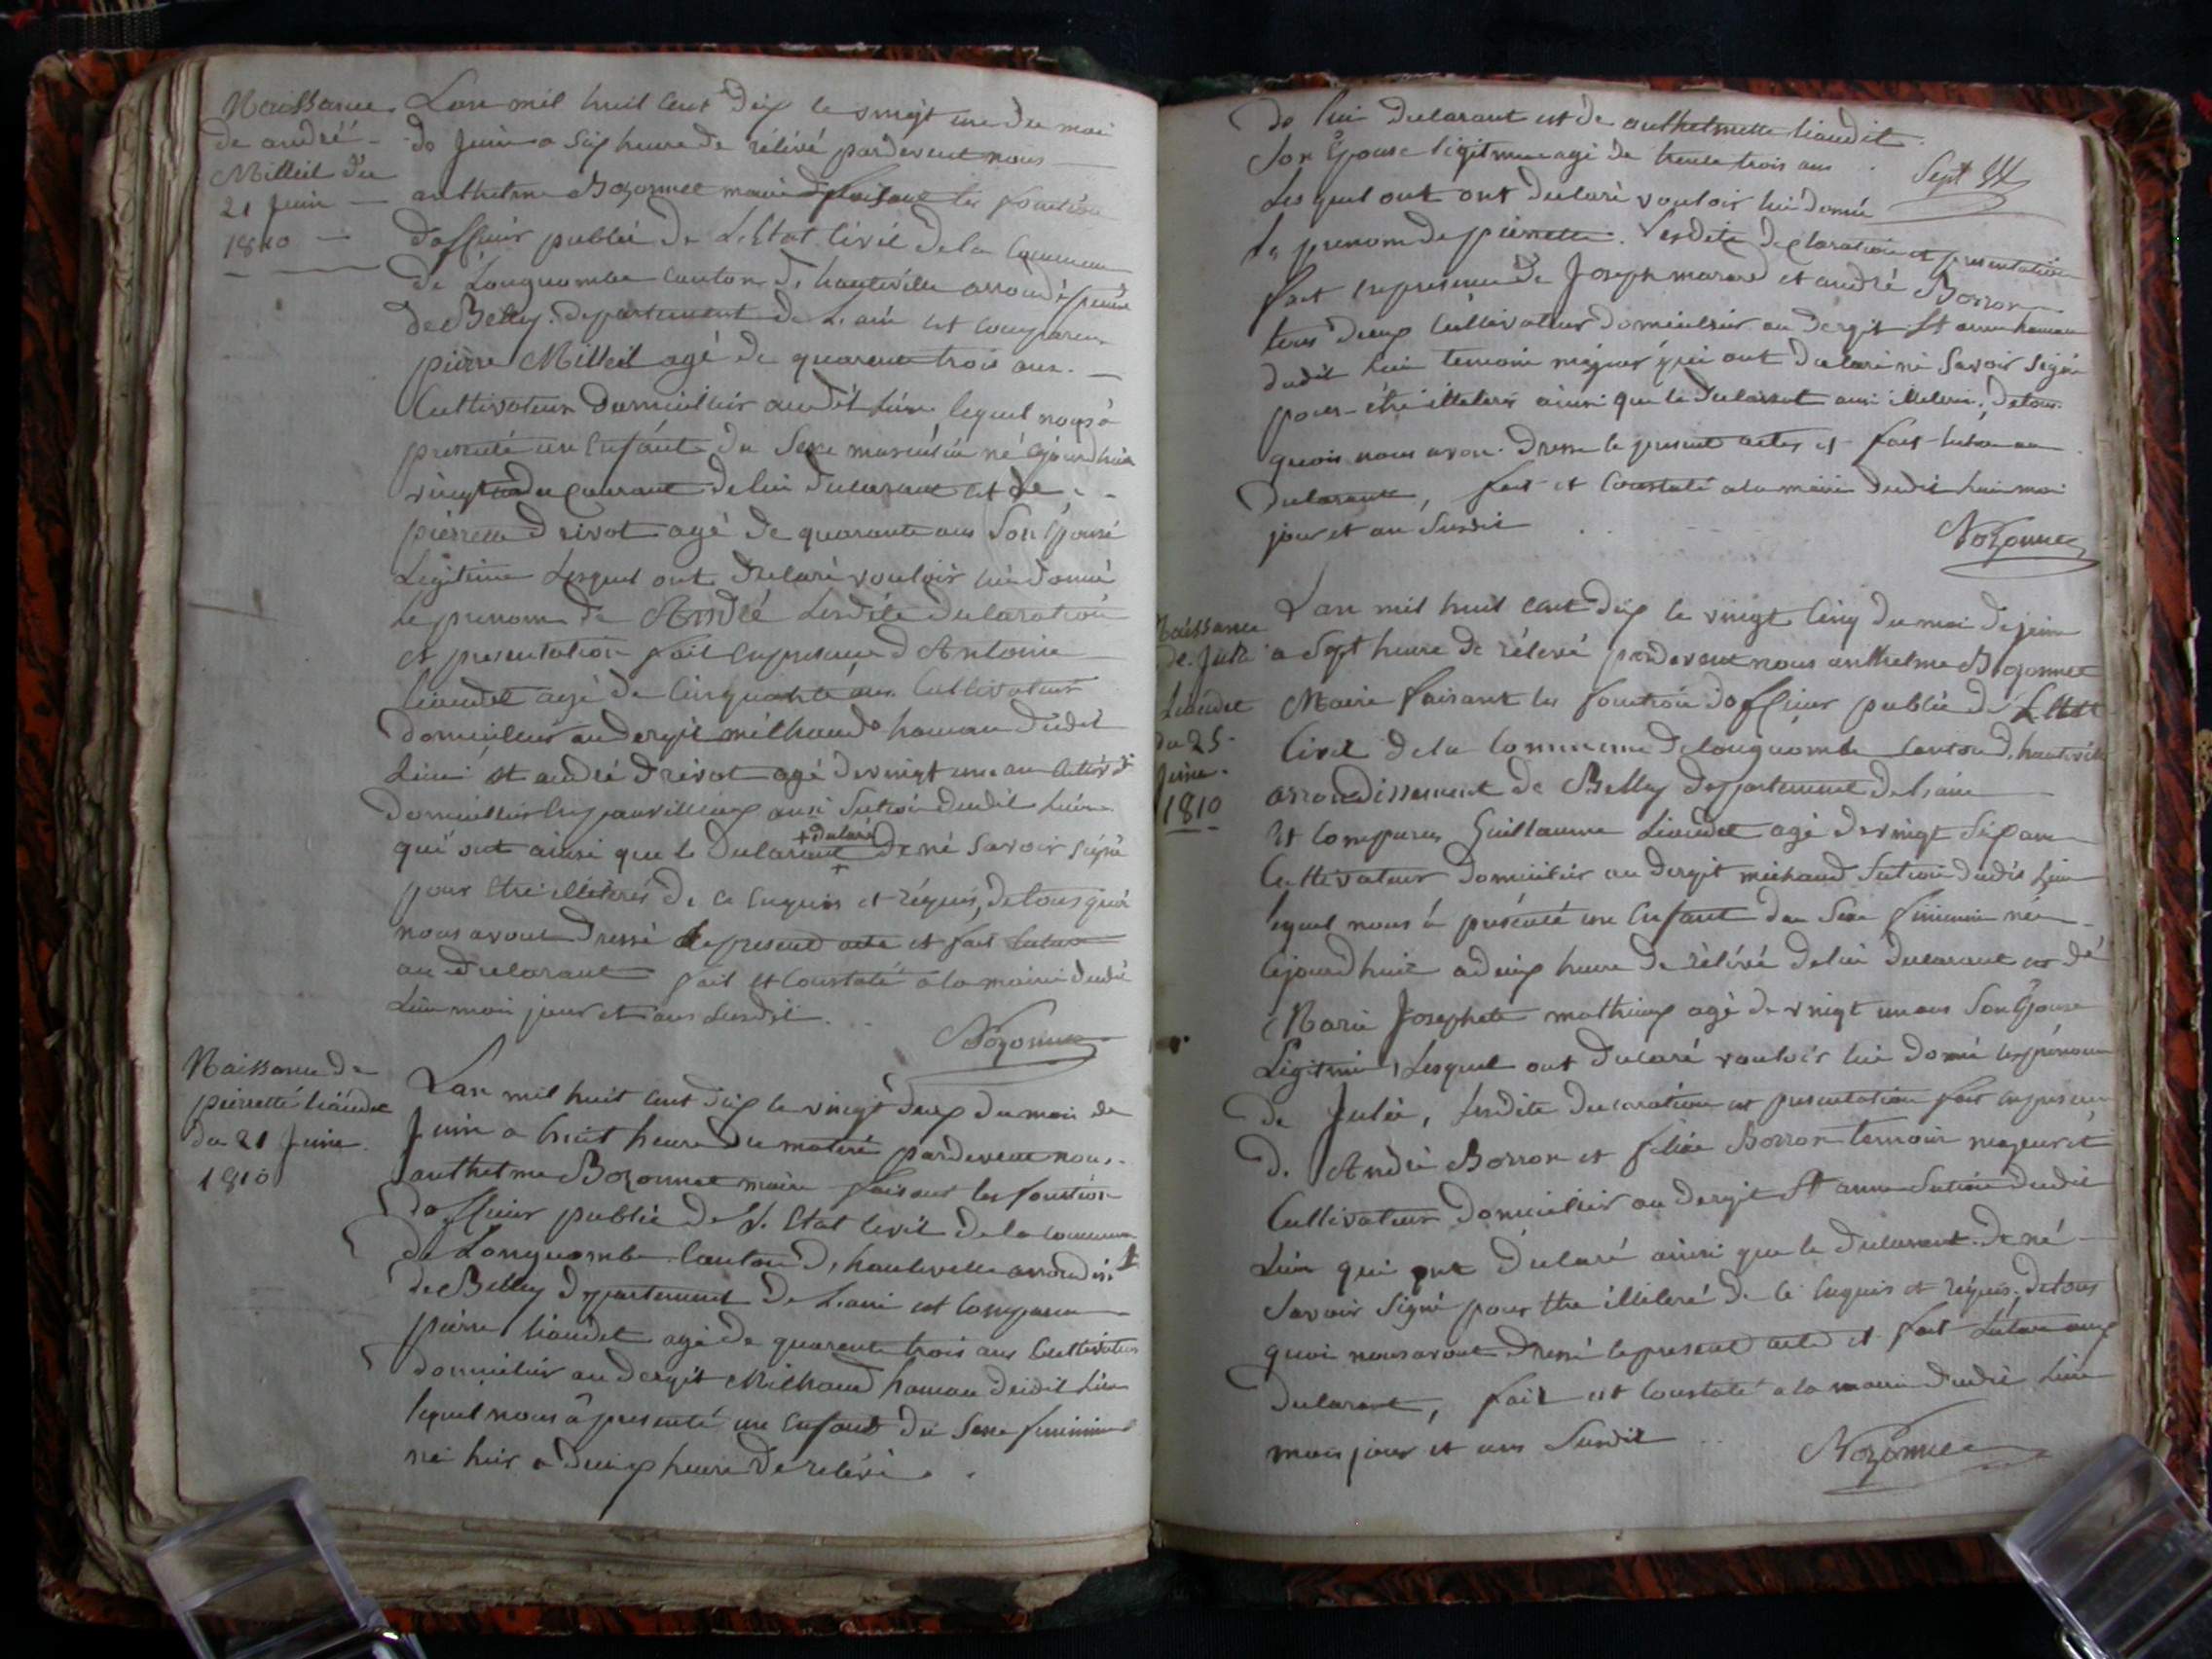 Naissance
de andré
Milleit du
21 Juin
1810
Lan mil huit Cent dix le vingt un du moi
de Juin a six heure de rélivé pardevent nous
anthelme Bozonnet maire faisant les fonction
dofficier public de L'Etat Civil de la Commune
de Longuombe Canton d, hauteville arrondis
de Belley. departement de L'ain est comparu
pierre Milleit agé de quarante trois ans.
Cultivateur Domicillier audit lieu lequel nous à
presenté un Enfant du Sexe masculin né Cejourdhuis
vingt un du Courant de lui declarant et de
pierrette drivot agé de quarante ans Son Epouse
Legitime Lesquel ont declaré vouloir lui donné
le prenom de André Lesdite declaration
et presentation fait En presence d Antoine
liaudet agé de Cinquante ans Cultivateur
domicilier au dergit milhaud hamau dudit
Lieu et andré drivot agé de vingt une an
domicillier dudit Lieu
qui ont ainsi que le declarant + declaré de né Savoir Signé
pour Etre illiterés de Ce Enquis et réquis, detous quoi
nous avont dressé le present acte et fait Lecture
au declarant fait et Constaté a la mairie dudit
Lieu moi jour et ans susdit.
Bozonnet
Naissance de
pierrette liaudet
du 21 Juin
1810
Lan mil huit Cent dix le vingt deux du moi de
Juin a huit heure du matin pardevent nous
anthelme Bozonnet maire faisant les fonction
dofficier public de L'Etat Civil de la commune
de Longuombe Canton d, hauteville arrondis
de Belley departement de L'ain est Comparu
pierre liaudet agé de quarante trois ans Cultivateur
domicilier au dergit Milhaud hamau dudit Lieu
lequel nous à presenté un Enfant du Sexe feminin
né hier a deux heure de relivé
de lui declarant et de anthelmette liaudit
Son Epouse légitime agé de trente trois ans
Les quel ont ont declaré vouloir lui donné
Sept
le prenom de pierrette. Lesdite declaration et presentation
fait En presence de Joseph et andré Borron
tous deux Cultivateur domicilier au dergit St anne hamau
dudit Lieu temoin majeur qui ont declaré né Savoir Signé
pour être illiteré ainsi que le declarant aussi illiteré, detous
quois nous avon dressé le present acte et fait lecture au
declarant, fait et Constaté a la mairie dudit Lieu moi
jour et an Susdit
Bozonnet
Naissance
de Julie
Liaudet
du 25
Juin.
1810
Lan mil huit Cent dix le vingt Cinq du moi de juin
a Sept heure de réleve pardevent nous anthelme Bozonnet
Maire faisant les fonction dofficier public de L'Etat
Civil de la Commune de longuombe Canton d, hauteville
arrondissement de Belley departement de L'ain
Est Comparu Guillaume Liaudet agé de vingt Six ans
Cultivateur domicilier au dergit michaud Section dudit Lieu
lequel nous à présenté un Enfant du Sexe feminin née
Cejourdhuit a deux heure de rélivé de lui declarant et dé
Marie Josephete mathieux agé de vingt un ans Son Epouse
Légitime, Lesquel ont declaré vouloir lui donné les prénom
de Julie, Lesdite declaration et presentation fait En presence
d. André Borron et Borron temoin majeur et
Cultivateur domicilier au dergit St anne Section dudit
Lieu qui ont declaré ainsi que le declarant. de né
Savoir Signé pour Etre illiteré de Ce Enquis et réquis. detous
quoi nous avont dressé le present acte et fait Lecture aux
declarant, fait et Constaté a la mairie dudit Lieu
mois jour et ans Susdit
Bozonnet